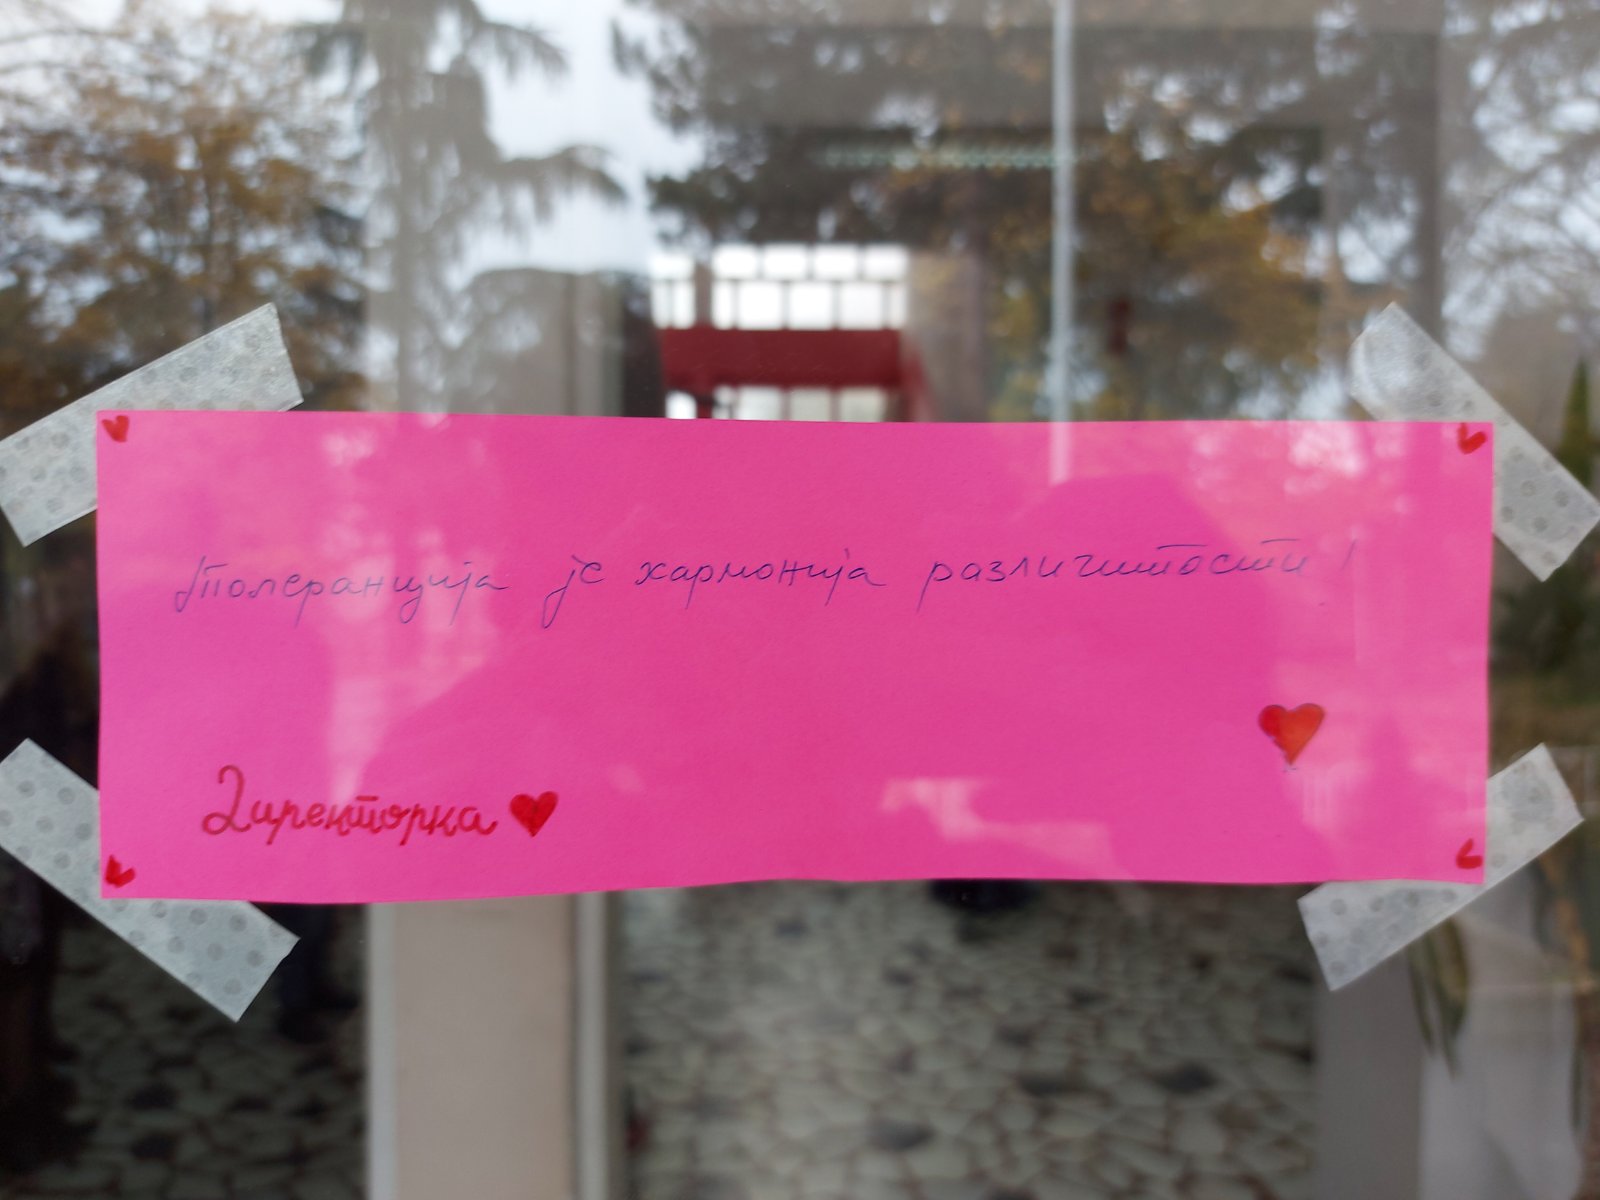 Толеранција је хармонија различитости!
Директорка